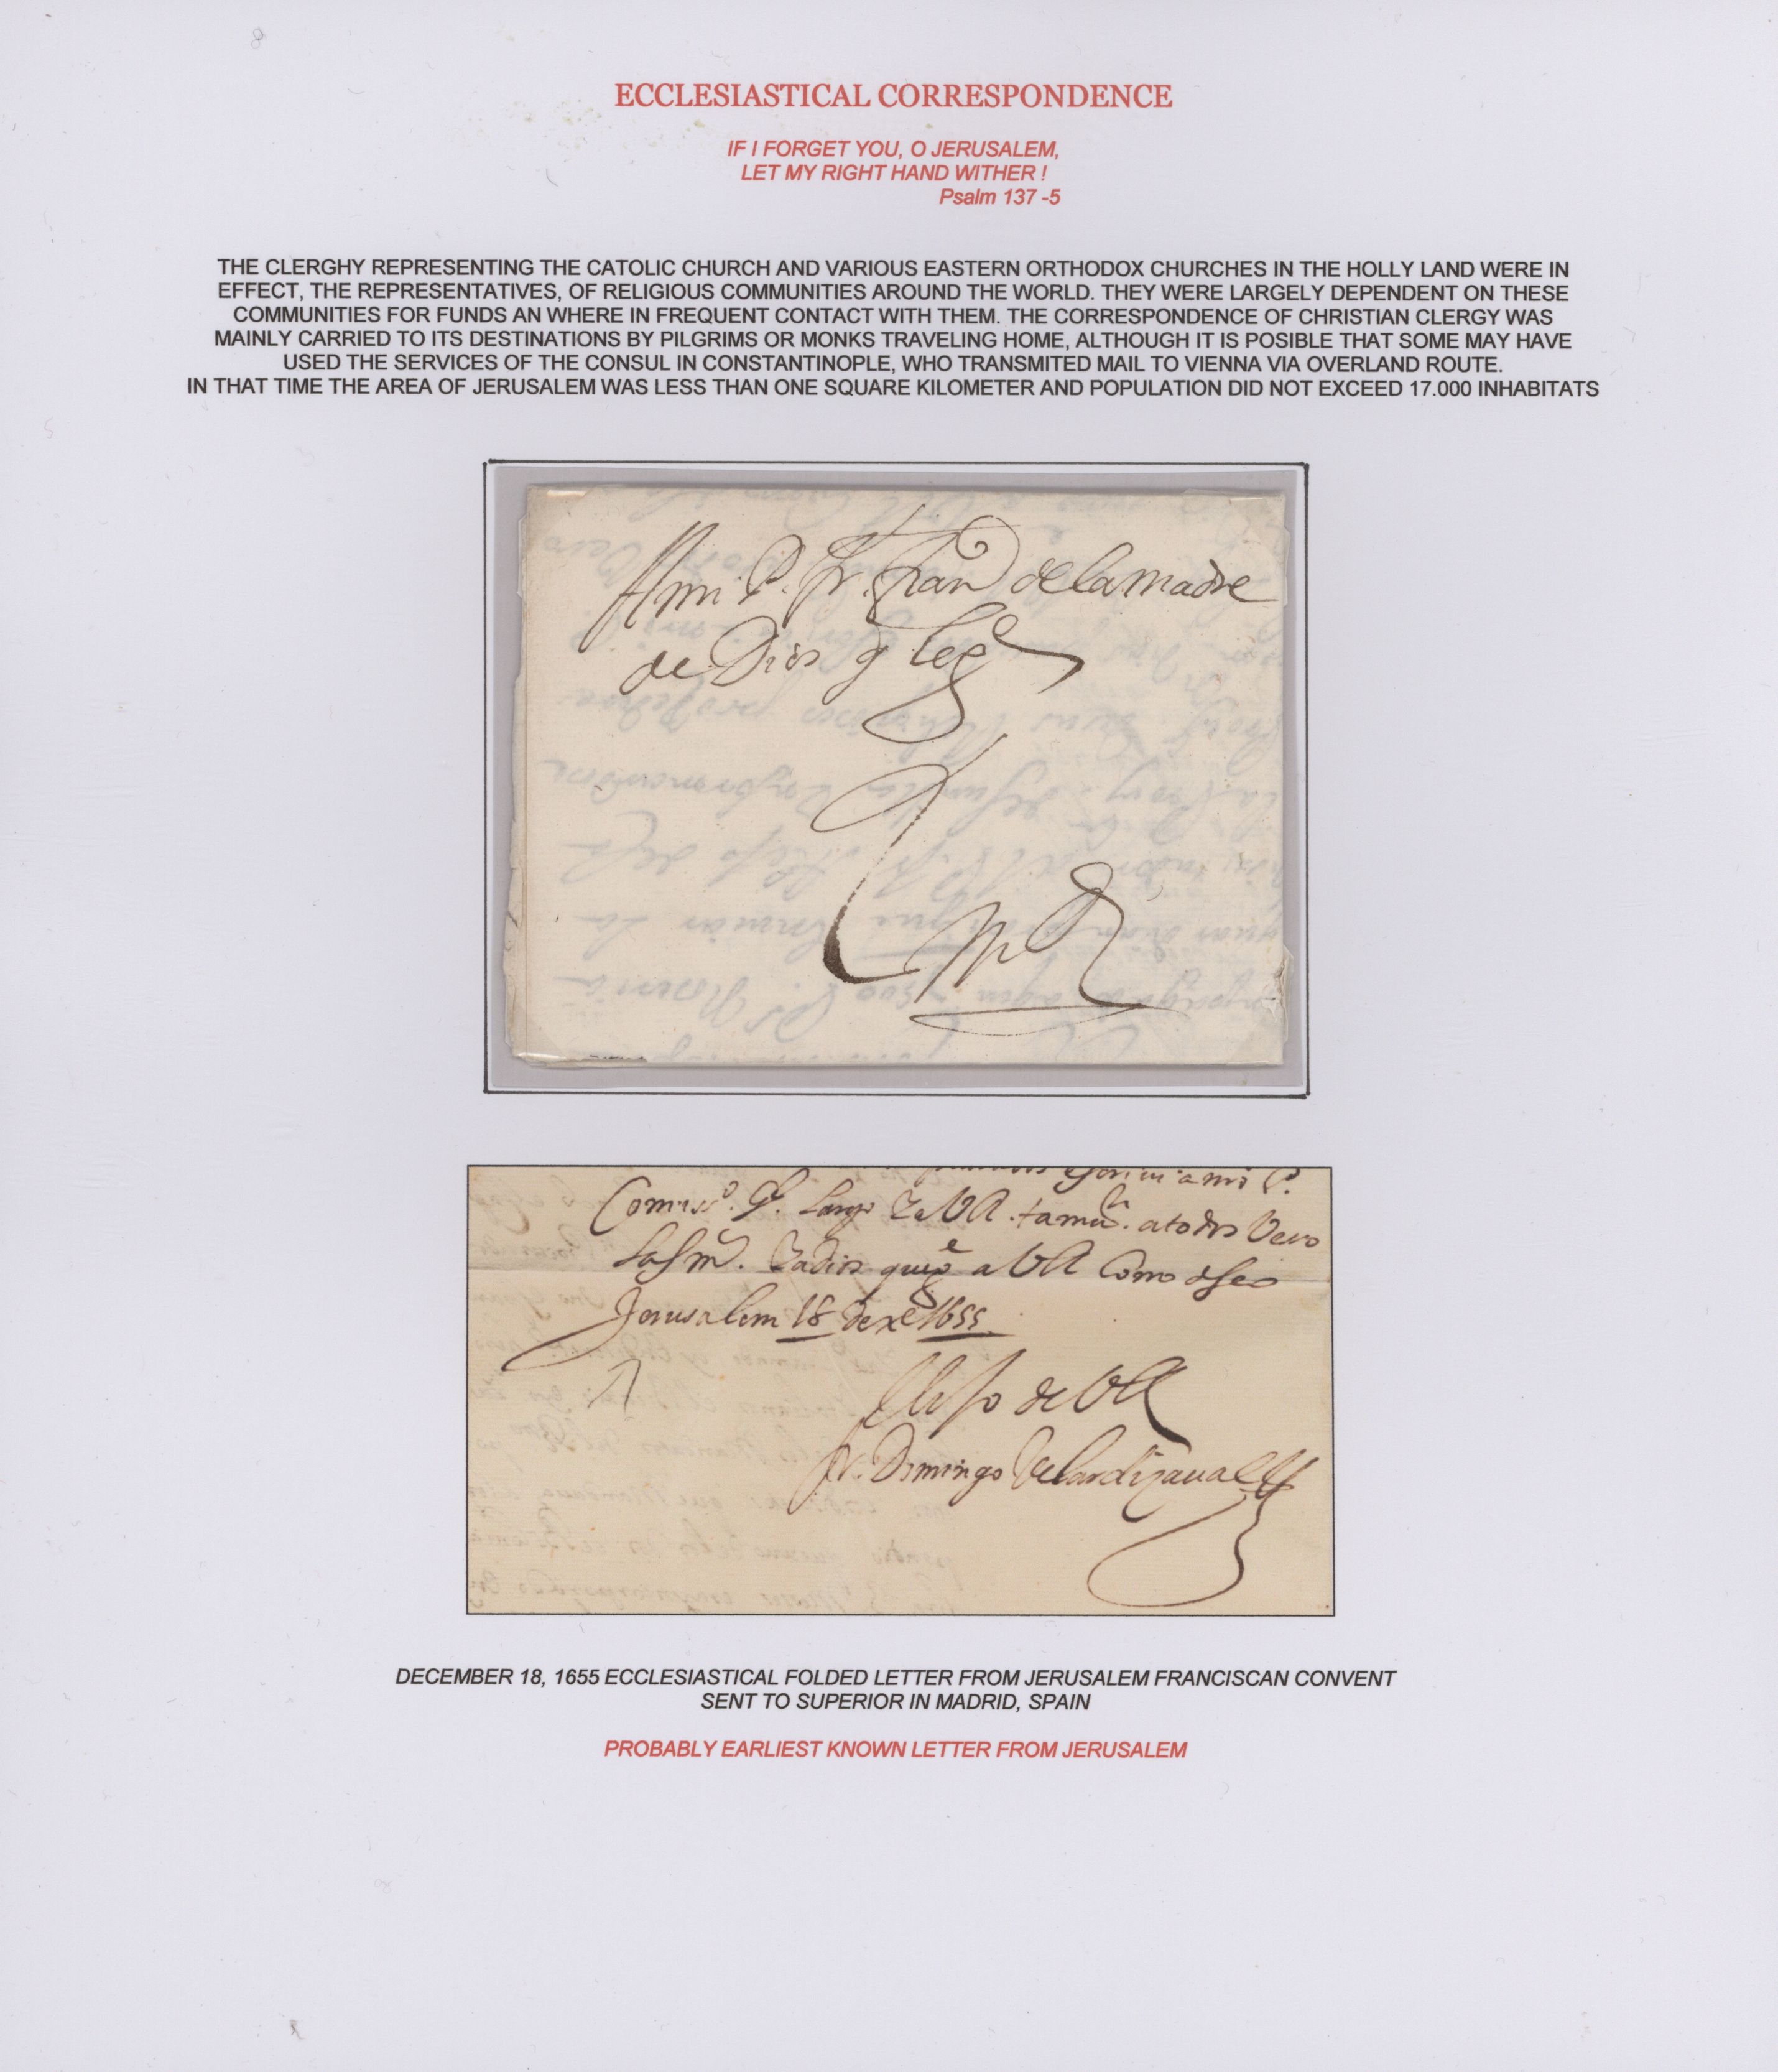 ECCLESIASTICAL CORRESPONDENCE
IF I FORGET YOU, O JERUSALEM,
LET MY RIGHT HAND WITHER !
Psalm 137 -5
THE CLERGHY REPRESENTING THE CATOLIC CHURCH AND VARIOUS EASTERN ORTHODOX CHURCHES IN THE HOLLY LAND WERE IN
EFFECT, THE REPRESENTATIVES, OF RELIGIOUS COMMUNITIES AROUND THE WORLD. THEY WERE LARGELY DEPENDENT ON THESE
COMMUNITIES FOR FUNDS AN WHERE IN FREQUENT CONTACT WITH THEM. THE CORRESPONDENCE OF CHRISTIAN CLERGY WAS
MAINLY CARRIED TO ITS DESTINATIONS BY PILGRIMS OR MONKS TRAVELING HOME, ALTHOUGH IT IS POSIBLE THAT SOME MAY HAVE
USED THE SERVICES OF THE CONSUL IN CONSTANTINOPLE, WHO TRANSMITED MAIL TO VIENNA VIA OVERLAND ROUTE.
IN THAT TIME THE AREA OF JERUSALEM WAS LESS THAN ONE SQUARE KILOMETER AND POPULATION DID NOT EXCEED 17.000 INHABITATS
A mi P. fr. Fran de la madre
de Dios
a mi P.
Comiss.o G.l a VR. a todos
a VR Como deseo
Jerusalem 18 de xe 1655
de VR
fr. Domingo
DECEMBER 18, 1655 ECCLESIASTICAL FOLDED LETTER FROM JERUSALEM FRANCISCAN CONVENT
SENT TO SUPERIOR IN MADRID, SPAIN
PROBABLY EARLIEST KNOWN LETTER FROM JERUSALEM